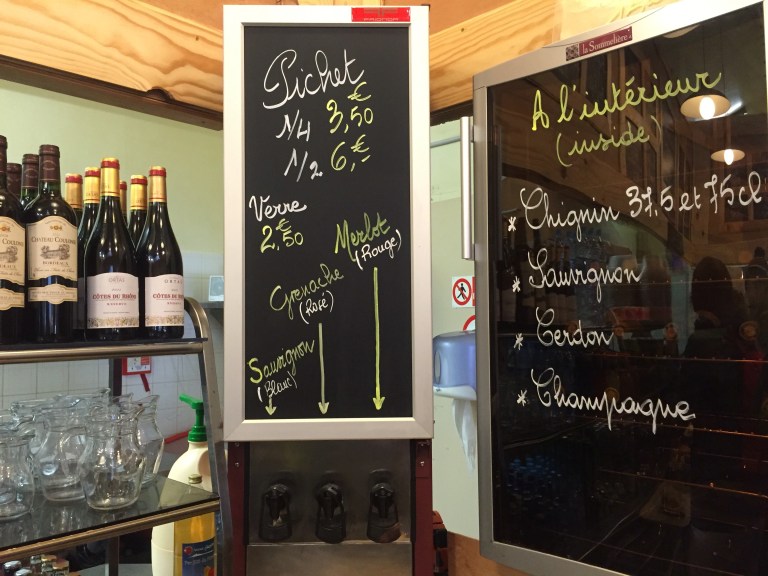 Pichet
1/4 3,50 €
1/2 6,- €
Verre
2,50 €
Merlot
(Rouge)
Grenache
(Rosé)
Sauvignon
(Blanc)
la Sommelière
A l'intérieur
(inside)
* Chignin 37,5 et 75 cl
* Sauvignon
* Cerdon
* Champagne
BORDEAUX
CÔTES DU RHÔNE
CÔTES DU RHÔNE